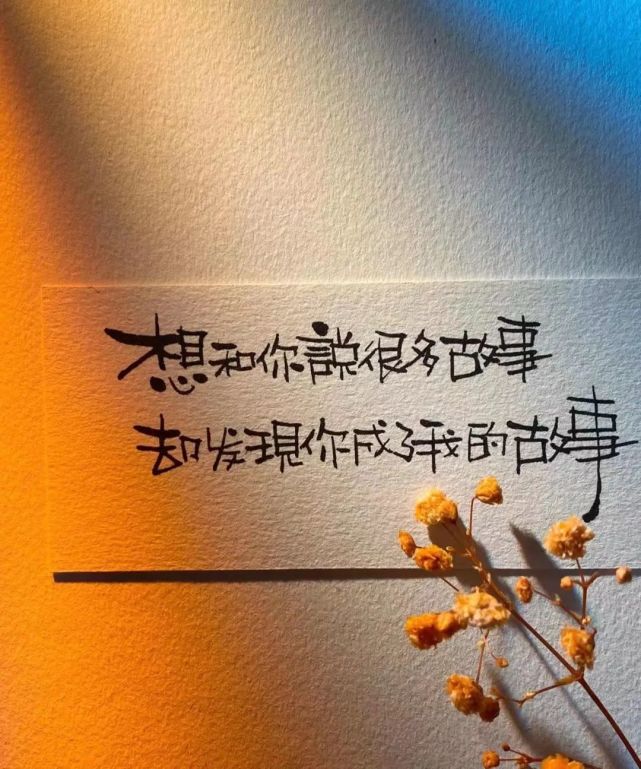 想和你說很多故事
却发現你成了我的故事